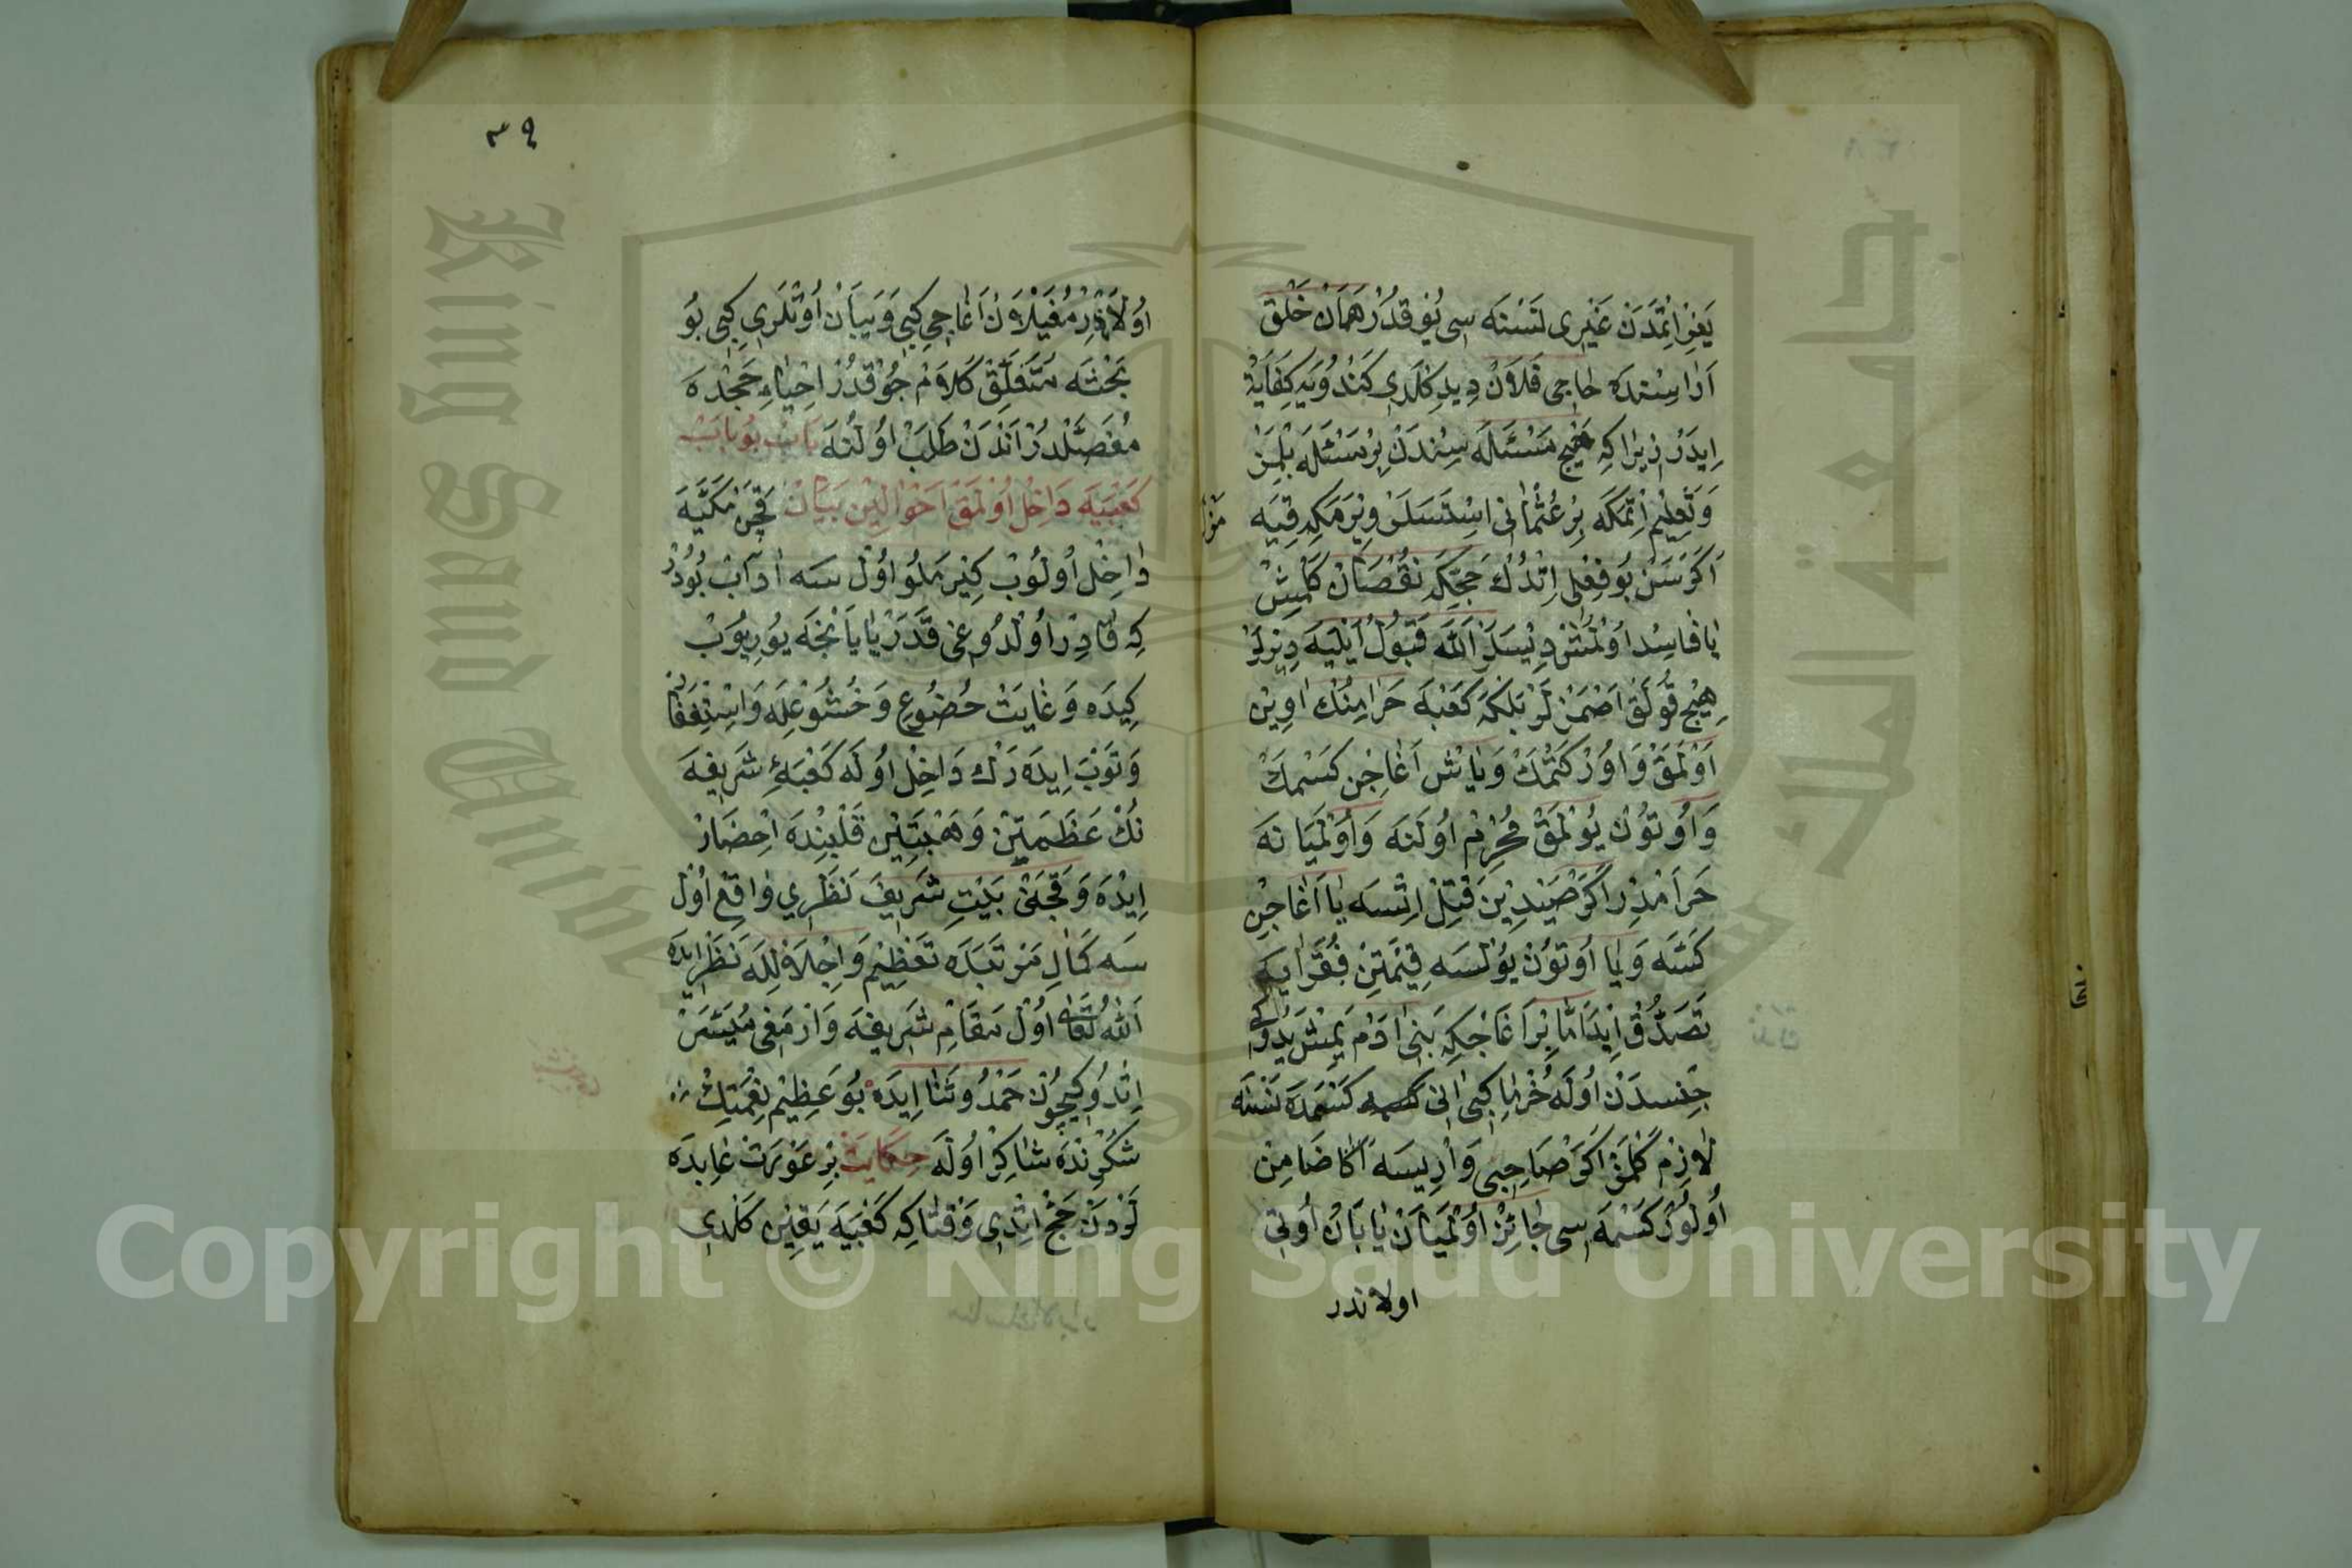 يَغِزْ اِتْمَدَنْ غَيْرِى نَسْنَه سِى يُوقْدُرْ هَمَانْ خَلْقْ
اَرَاسِنْدَه حَاجِى فَلَانْ دِيدِكْلَرِى كَنْدُويَه كِفَايَتْ
اِيدَرْ زِيرَاكِه هِيچْ مَسْئَلَه سِنْدَنْ بِرْ مَسْئَلَه بِلْمَزْ
وَتَعْلِيمْ اِتْمَكَه بِرْ عُثْمَانِى اِسْتَسَلَرْ وِيرْمَكِه قِيَه
مَزْ
اَكَرْ سَنْ بُو فِعْلِى اِتْدُكْ حَجِّكَه نُقْصَانْ كَلْمِشْ
يَا فَاسِدْ اَوْلْمُشْ دِيسَلَرْ اَللّٰه قَبُولْ اَيْلَيَه دِيرْلَرْ
هِيچْ قُولَقْ اَصْمَزْلَرْ بَلْكَه كَعْبَه حَرَامِنُكْ اَوِينْ
اَوْلَمَقْ وَاُوزْ كَتْمَكْ وَيَاشْ اَغَاجِنْ كَسْمَكْ
وَاُوتُونْ يُوْلْمَقْ مُحْرِمْ اُولَنَه وَاُوْلْمَيَا نَه
حَرَامْدِرْ اَكَرْ صَيْدِينْ قَتْلْ اِتْسَه يَا اَغَاجِنْ
كَسَّه وَيَا اُوتُونْ يُوْلْسَه قِيْمَتِنْ فُقَرَايَه
تَصَدُّقْ اِيدَه اَمَّا بِرْ اَغَاجَكِه بَنِى اٰدَمْ يَمِشْ يَدُوكِى
جِنْسدَنْ اُولَه خُرْمَا كِبِى اَنِى كَسْمَدَه نَسْنَه
لَازِمْ كَلْمَزْ اَكَرْ صَاحِبِى وَارِيسَه اَكَا ضَامِنْ
اُولُورْ كَسْمَه سِى جَائِزْ اُوْلْمَيَانْ يَابَانْ اُوتِى
اولاندر
٣٩
اُولَانْدِرْ مُغَيْلَانْ اَغَاجِى كِبِى وَيَبَانْ اُوتْلَرِى كِبِى بُو
بَحْثَه مُتَعَلِّقْ كَلَامْ چُوقْدُرْ اِحْيَاءِ حَجْدَه
مُفَصَّلْدُرْ اَنْدَنْ طَلَبْ اُولُنَه بَابْ بُو بَابْ
كَعْبَيَه دَاخِلْ اُولْمَقْ اَحْوَالِينْ بَيَانْ قَچَنْ مَكَّيَه
دَاخِلْ اُولُوبْ كِيرْمَلُو اُوْلْ سَه اٰدَابْ بُودُرْ
كِه قَادِرْ اُولْدُوغِى قَدَرْ يَايَانْجَه يُورِيُوبْ
كِيدَه وَغَايَتْ خُضُوعْ وَخُشُوعْلَه وَاِسْتِغْفَارْ
وَتَوْبَه اِيدَه رَكْ دَاخِلْ اُولَه كَعْبَهِٔ شَرِيفَه
نُكْ عَظَمَتِنْ وَهَيْبَتِينْ قَلْبِنْدَه اِحْضَارْ
اِيدَه وَقَچَنْ بَيْتِ شَرِيفَه نَظَرِى وَاقِعْ اُوْلْ
سَه كَمَالِ مَرْتَبَدَه تَعْظِيمْ وَاِجْلَالْلَه نَظَرْ ايدَه
اَللّٰهُ تَعَالٰى اُوْلْ مَقَامِ شَرِيفَه وَارْمَغِى مُيَسَّرْ
اِتْدُوكِيچُونْ حَمْدُ وَثَنَا اِيدَه بُو عَظِيمْ نِعْمَتِكْ
شُكْرِنْدَه شَاكِرْ اُولَه حِكَايَتْ بِرْ عَوْرَتْ عَابِدَه
لَرْدَنْ حَجْ اِتْدِى وَقْتَاكِه كَعْبَيَه يَقِينْ كَلْدِى